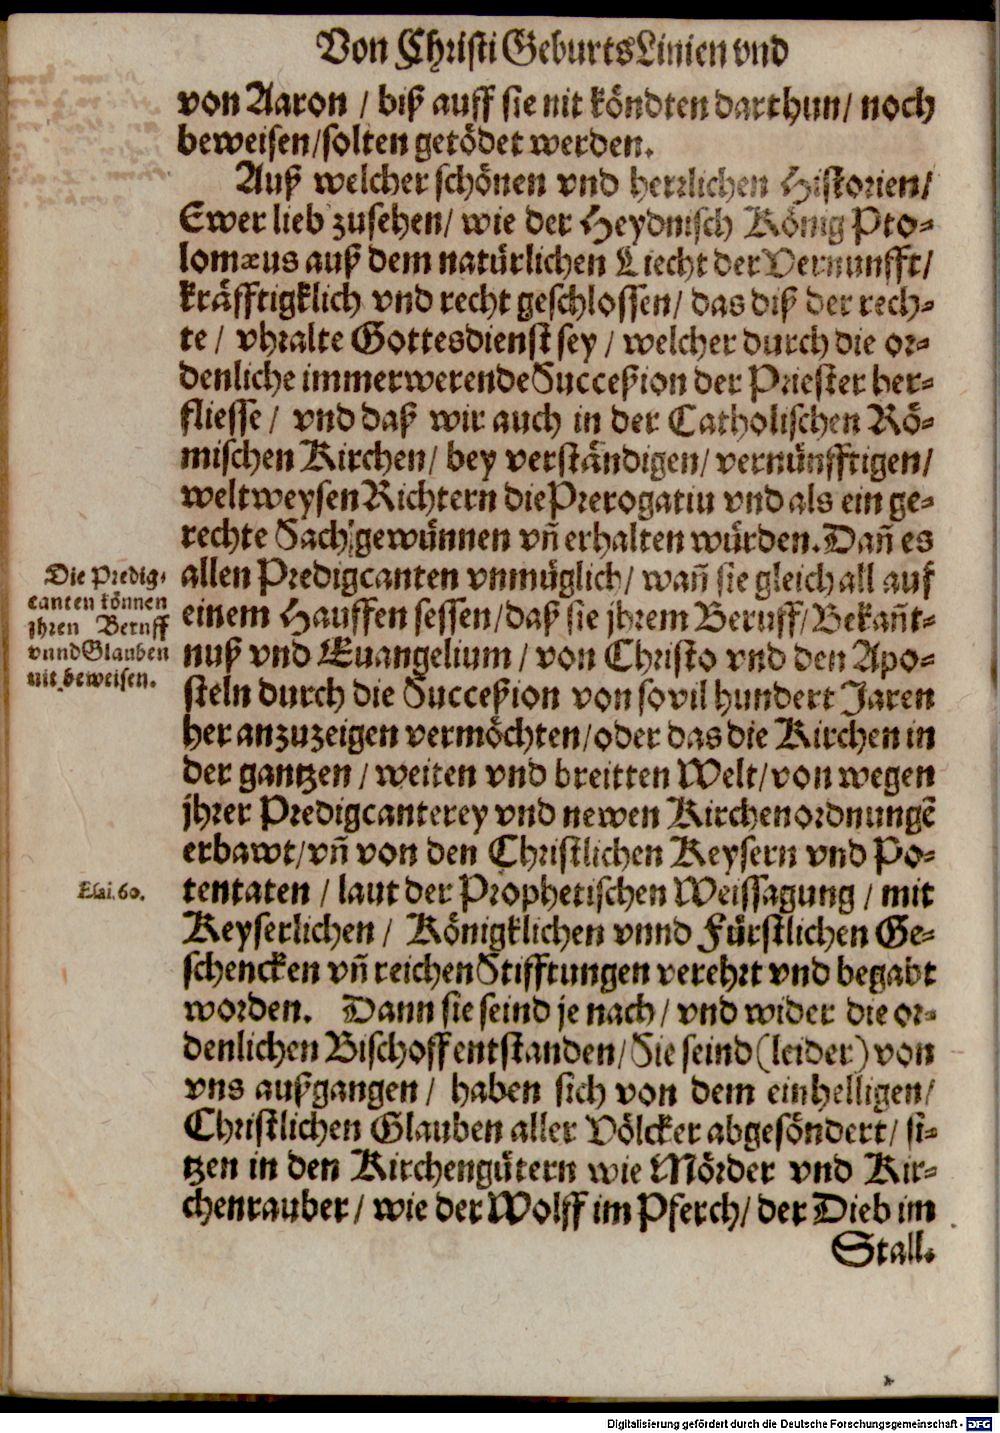 Von Christi Geburts Linien vnd
von Aaron / biß auff sie nit köndten darthun / noch
beweisen / solten getödet werden.
Auß welcher schönen vnd herrlichen Historien /
Ewer lieb zusehen / wie der Heydnisch König Pto-
lomæus auß dem natürlichen Liecht der Vernunfft /
kräfftigklich vnd recht geschlossen / das diß der rech-
te / vhralte Gottesdienst sey / welcher durch die or-
denliche immerwerende Succeßion der Priester her-
fliesse / vnd daß wir auch in der Catholischen Rö-
mischen Kirchen / bey verständigen / vernünfftigen /
weltweysen Richtern die Prerogatiu vnd als ein ge-
rechte Sach gewünnen vñ erhalten würden. Dañ es
Die Predig-
canten können
jhren Beruff
vnnd Glauben
nit beweisen.
allen Predigcanten vnmüglich / wañ sie gleich all auf
einem Hauffen sessen / daß sie jhrem Beruff / Bekañt-
nuß vnd Euangelium / von Christo vnd den Apo-
steln durch die Succeßion von sovil hundert Jaren
her anzuzeigen vermöchten / oder das die Kirchen in
der gantzen / weiten vnd breitten Welt / von wegen
jhrer Predigcanterey vnd newen Kirchenordnungẽ
erbawt / vñ von den Christlichen Keysern vnd Po-
Esai. 60.
tentaten / laut der Prophetischen Weissagung / mit
Keyserlichen / Königklichen vnnd Fürstlichen Ge-
schencken vñ reichen Stifftungen verehrt vnd begabt
worden. Dann sie seind je nach / vnd wider die or-
denlichen Bischoff entstanden / Sie seind (leider) von
vns außgangen / haben sich von dem einhelligen /
Christlichen Glauben aller Völcker abgesöndert / si-
tzen in den Kirchengütern wie Mörder vnd Kir-
chenrauber / wie der Wolff im Pferch / der Dieb im
Stall.
Digitalisierung gefördert durch die Deutsche Forschungsgemeinschaft - DFG